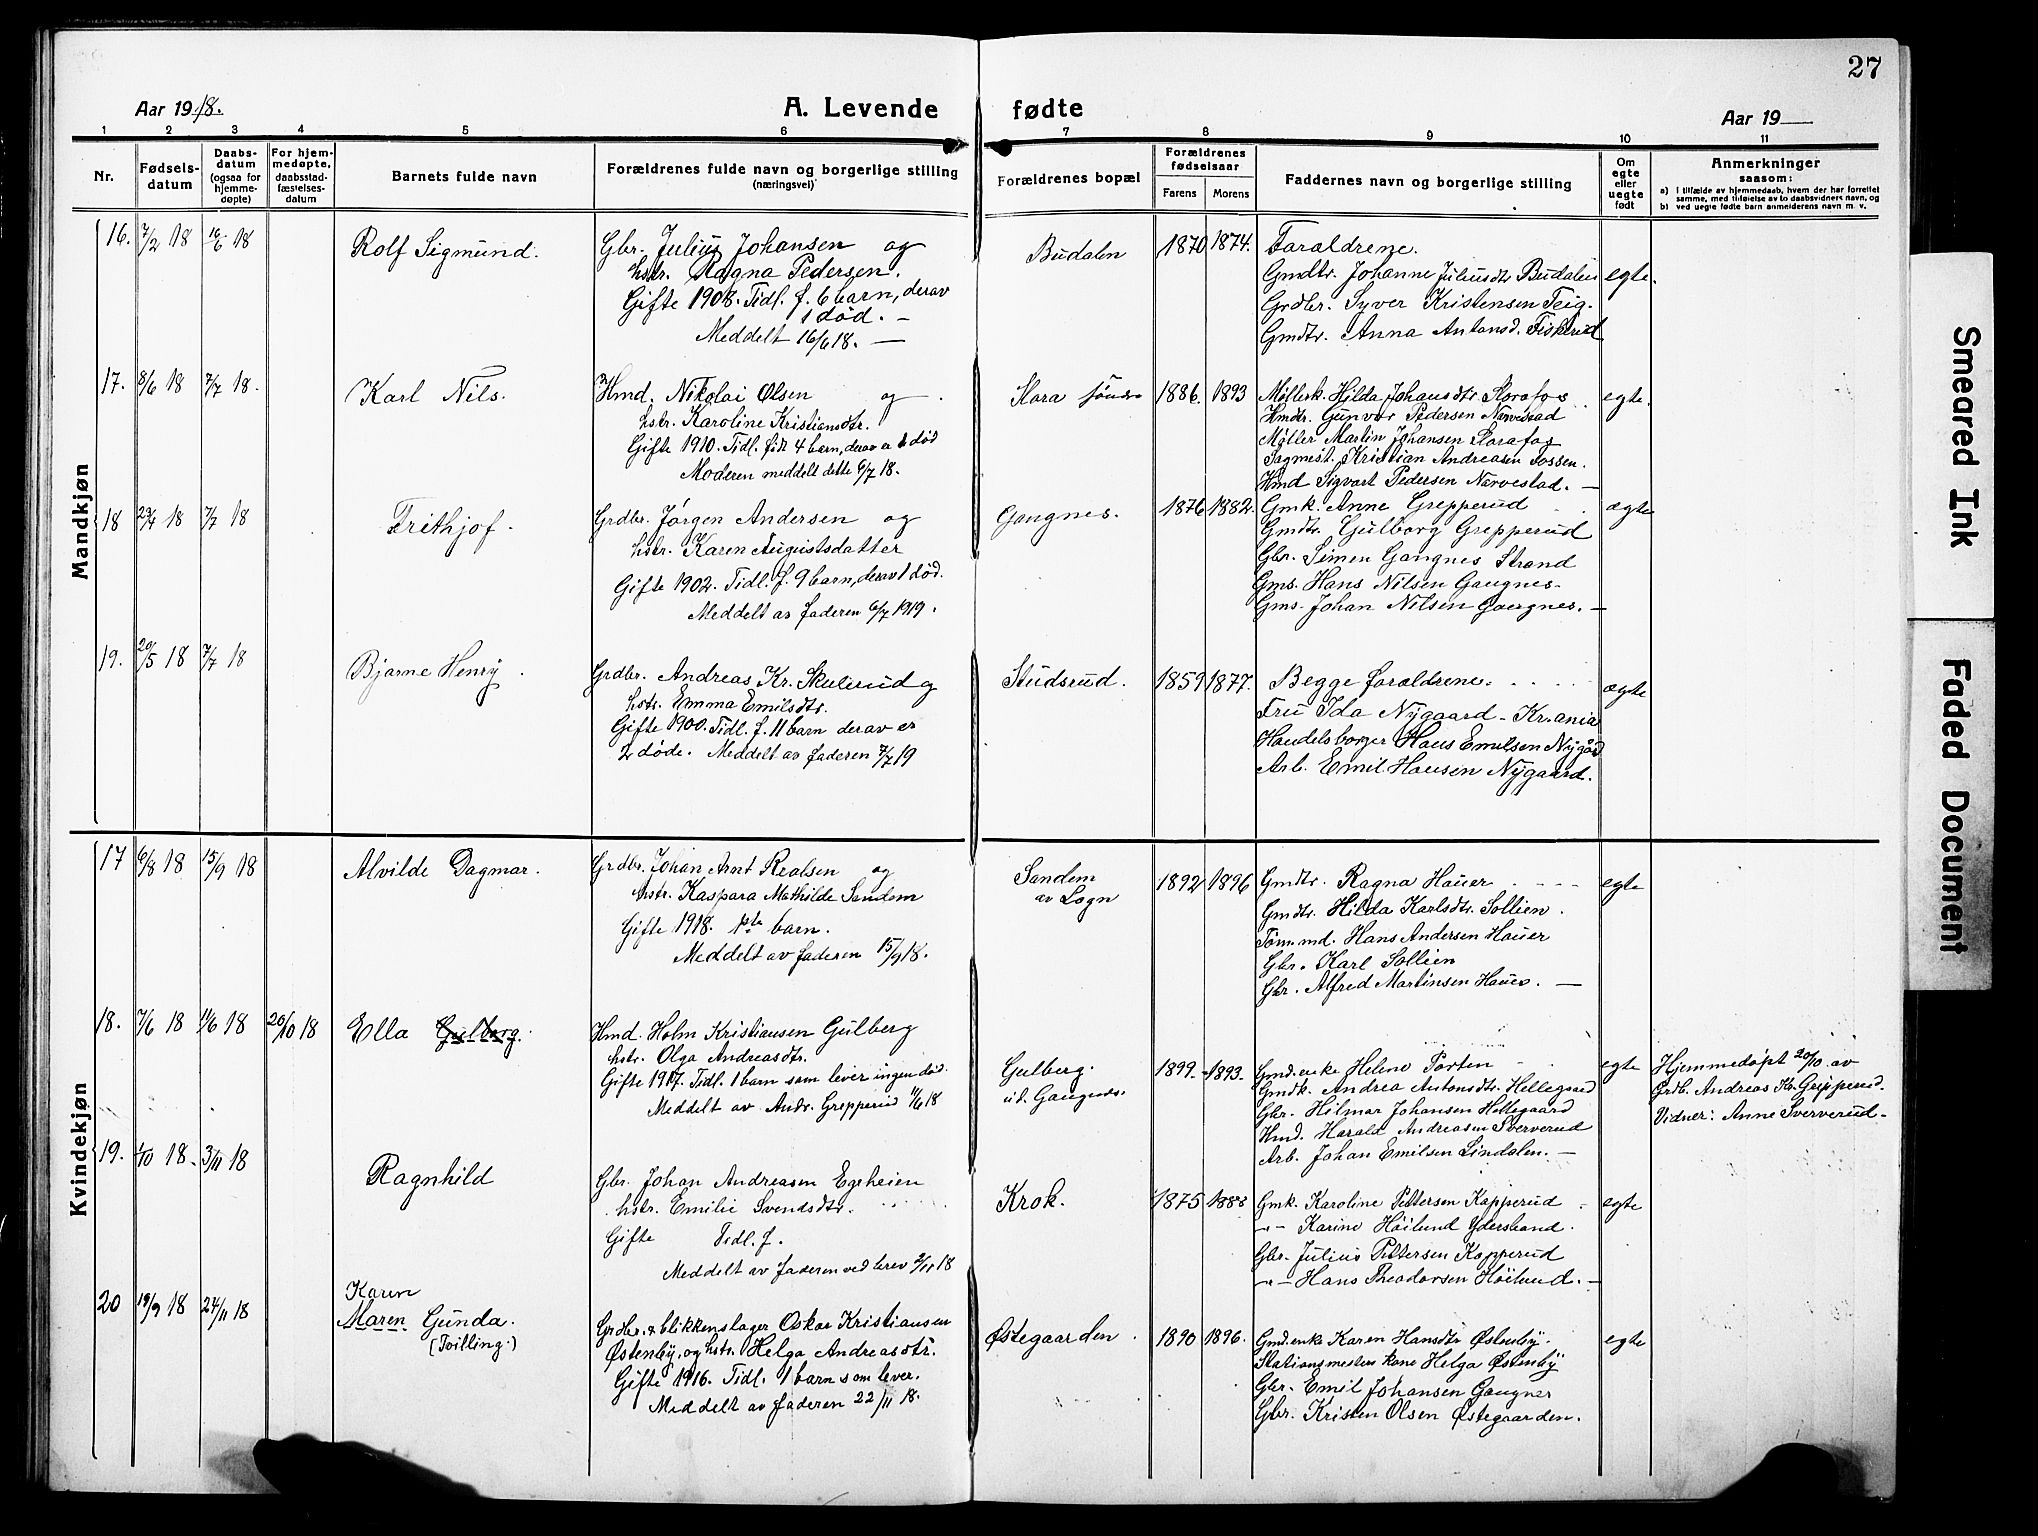 27
Aar 1918.
A. Levende fødte
Aar 19
1 2 3 4 5 6 7 8 9 10 11
Nr.
Fødsels-
datum
Daabs-
datum
(ogsaa for
hjemme-
døpte)
For hjem-
medøpte,
daabsstad-
fæstelses-
datum
Barnets fulde navn
Forældrenes fulde navn og borgerlige stilling
(næringsvei)
Forældrenes bopæl
Forældrenes
fødselsaar
Farens Morens
Faddernes navn og borgerlige stilling
Om
egte
eller
uegte
født
Anmerkninger
saasom:
a) i tilfælde av hjemmedaab, hvem der har forrettet
samme, med tilføielse av to daabsvidners navn, og
b) ved uegte fødte barn anmelderens navn m. v.
Mandkjøn
16. 7/2 18 16/6 18
Rolf Sigmund.
Gbr. Julius Johansen og
hstr. Ragna Pedersen.
Gifte 1908. Tidl. f. 6 barn, derav
1 død. —
Meddelt 16/6 18. —
Budalen
1870 1874.
Foraldrene.
Gmdtr. Johanne Juliusdtr Budalen
Grdbr. Syver Kristensen Teig.
Gmdtr. Anna Antonsd. Fiskerud
egte.
17. 8/6 18 7/7 18.
Karl Nils.
Hmd. Nikolai Olsen og
hstr. Karoline Kristiansdtr.
Gifte 1910. Tidl. født 4 barn, derav er 1 død
Moderen meddelt dette 6/7 18.
Stora søndre
1886. 1893
Møllerk. Hilda Johansdtr Storafos
Hmdtr. Gunvor Pedersen Nærvestad
Møller Martin Johansen Storafos
Sagmest. Kristian Andreasen Fossen.
Hmd Sigvart Pedersen Nærvestad. —
egte.
18 29/4 18 7/7 18
Frithjof.
Grdbr. Jørgen Andersen og
hstr. Karen Augustsdatter
Gifte 1902. Tidl. f. 9 barn, derav 1 død.
Meddelt av faderen 6/7 1919.
Gangnes.
1876 1882.
Gmk. Anne Grepperud
Gmdtr. Gulborg Grepperud
Gbr. Simen Gangnes Strand
Gms. Hans Nilsen Gangnes.
Gms. Johan Nilsen Gangnes. —
ægte
19. 20/5 18 7/7 18
Bjarne Henry.
Grdbr. Andreas Kr. Skulerud og
hstr. Emma Emilsdtr.
Gifte 1900. Tidl. f. 11 barn derav er
2 døde. Meddelt av faderen 7/7 19
Studsrud.
1859 1877.
Begge foraldrene.
Fru Ida Nygaard - Kr.ania
Handelsborger Hans Emilsen Nygård
Arb. Emil Hansen Nygaard.
ægte
Kvindekjøn
17 6/8 18 15/9 18
Alvilde Dagmar.
Grdbr. Johan Arnt Realsen og
hstr. Kaspara Mathilde Sandem
Gifte 1918. 1ste barn.
Meddelt av faderen 15/9 18.
Sandem
av Logn
1892 1896
Gmdtr. Ragna Hauer
Gmdtr. Hilda Karlsdtr. Sollien.
Tømmd. Hans Andersen Hauer
Gbr. Karl Sollien
Gbr. Alfred Martinsen Hauer. —
egte
18. 7/6 18 11/6 18 20/10 18
Ella Gulborg.
Hmd. Holm Kristiansen Gulberg
hstr. Olga Andreasdtr.
Gifte 1917. Tidl. 1 barn som lever ingen død.
Meddelt av Andr. Grepperud 11/6 18
Gulberg.
u. Gangnes.
1899 - 1893.
Gmd.enke Helene Porten
Gmdk. Andrea Antonsdtr. Hellegaard
Gbr. Hilmar Johansen Hellegaard
Hmd. Harald Andreasen Sververud
Arb. Johan Emilsen Lindalen. —
egte
Hjemmedøpt 20/10 av
Grdb. Andreas Kr. Grepperud.
Vidner: Anne Sververud.
19. 1/10 18. 3/11 18
Ragnhild
Gbr. Johan Andreasen Egeheien
hstr. Emilie Svendsdtr.
Gifte Tidl. f.
Meddelt av faderen ved brev 2/11 18
Krok.
1875 1888
Gmk. Karoline Pettersen Kapperud
—"— Karine Höilund Ydersbond.
Gbr. Julius Pettersen Kapperud
—"— Hans Theodorsen Höilund. —
egte
20 19/9 18 24/11 18
Karen
Maren Gunda.
(Tvilling.)
Grdbr. & blikkenslager Oskar Kristiansen
Østenby, og hstr. Helga Andreasdtr.
Gifte 1916. Tidl. 1 barn som lever.
Meddelt av faderen 22/11 18.
Østegaarden.
1890 1896.
Gmd.enke Karen Hansdtr Østenby.
Stationsmesters kone Helga Østenby
Gbr. Emil Johansen Gangnes
Gbr. Kristen Olsen Østegaarden.
egte
Smeared Ink
Faded Document